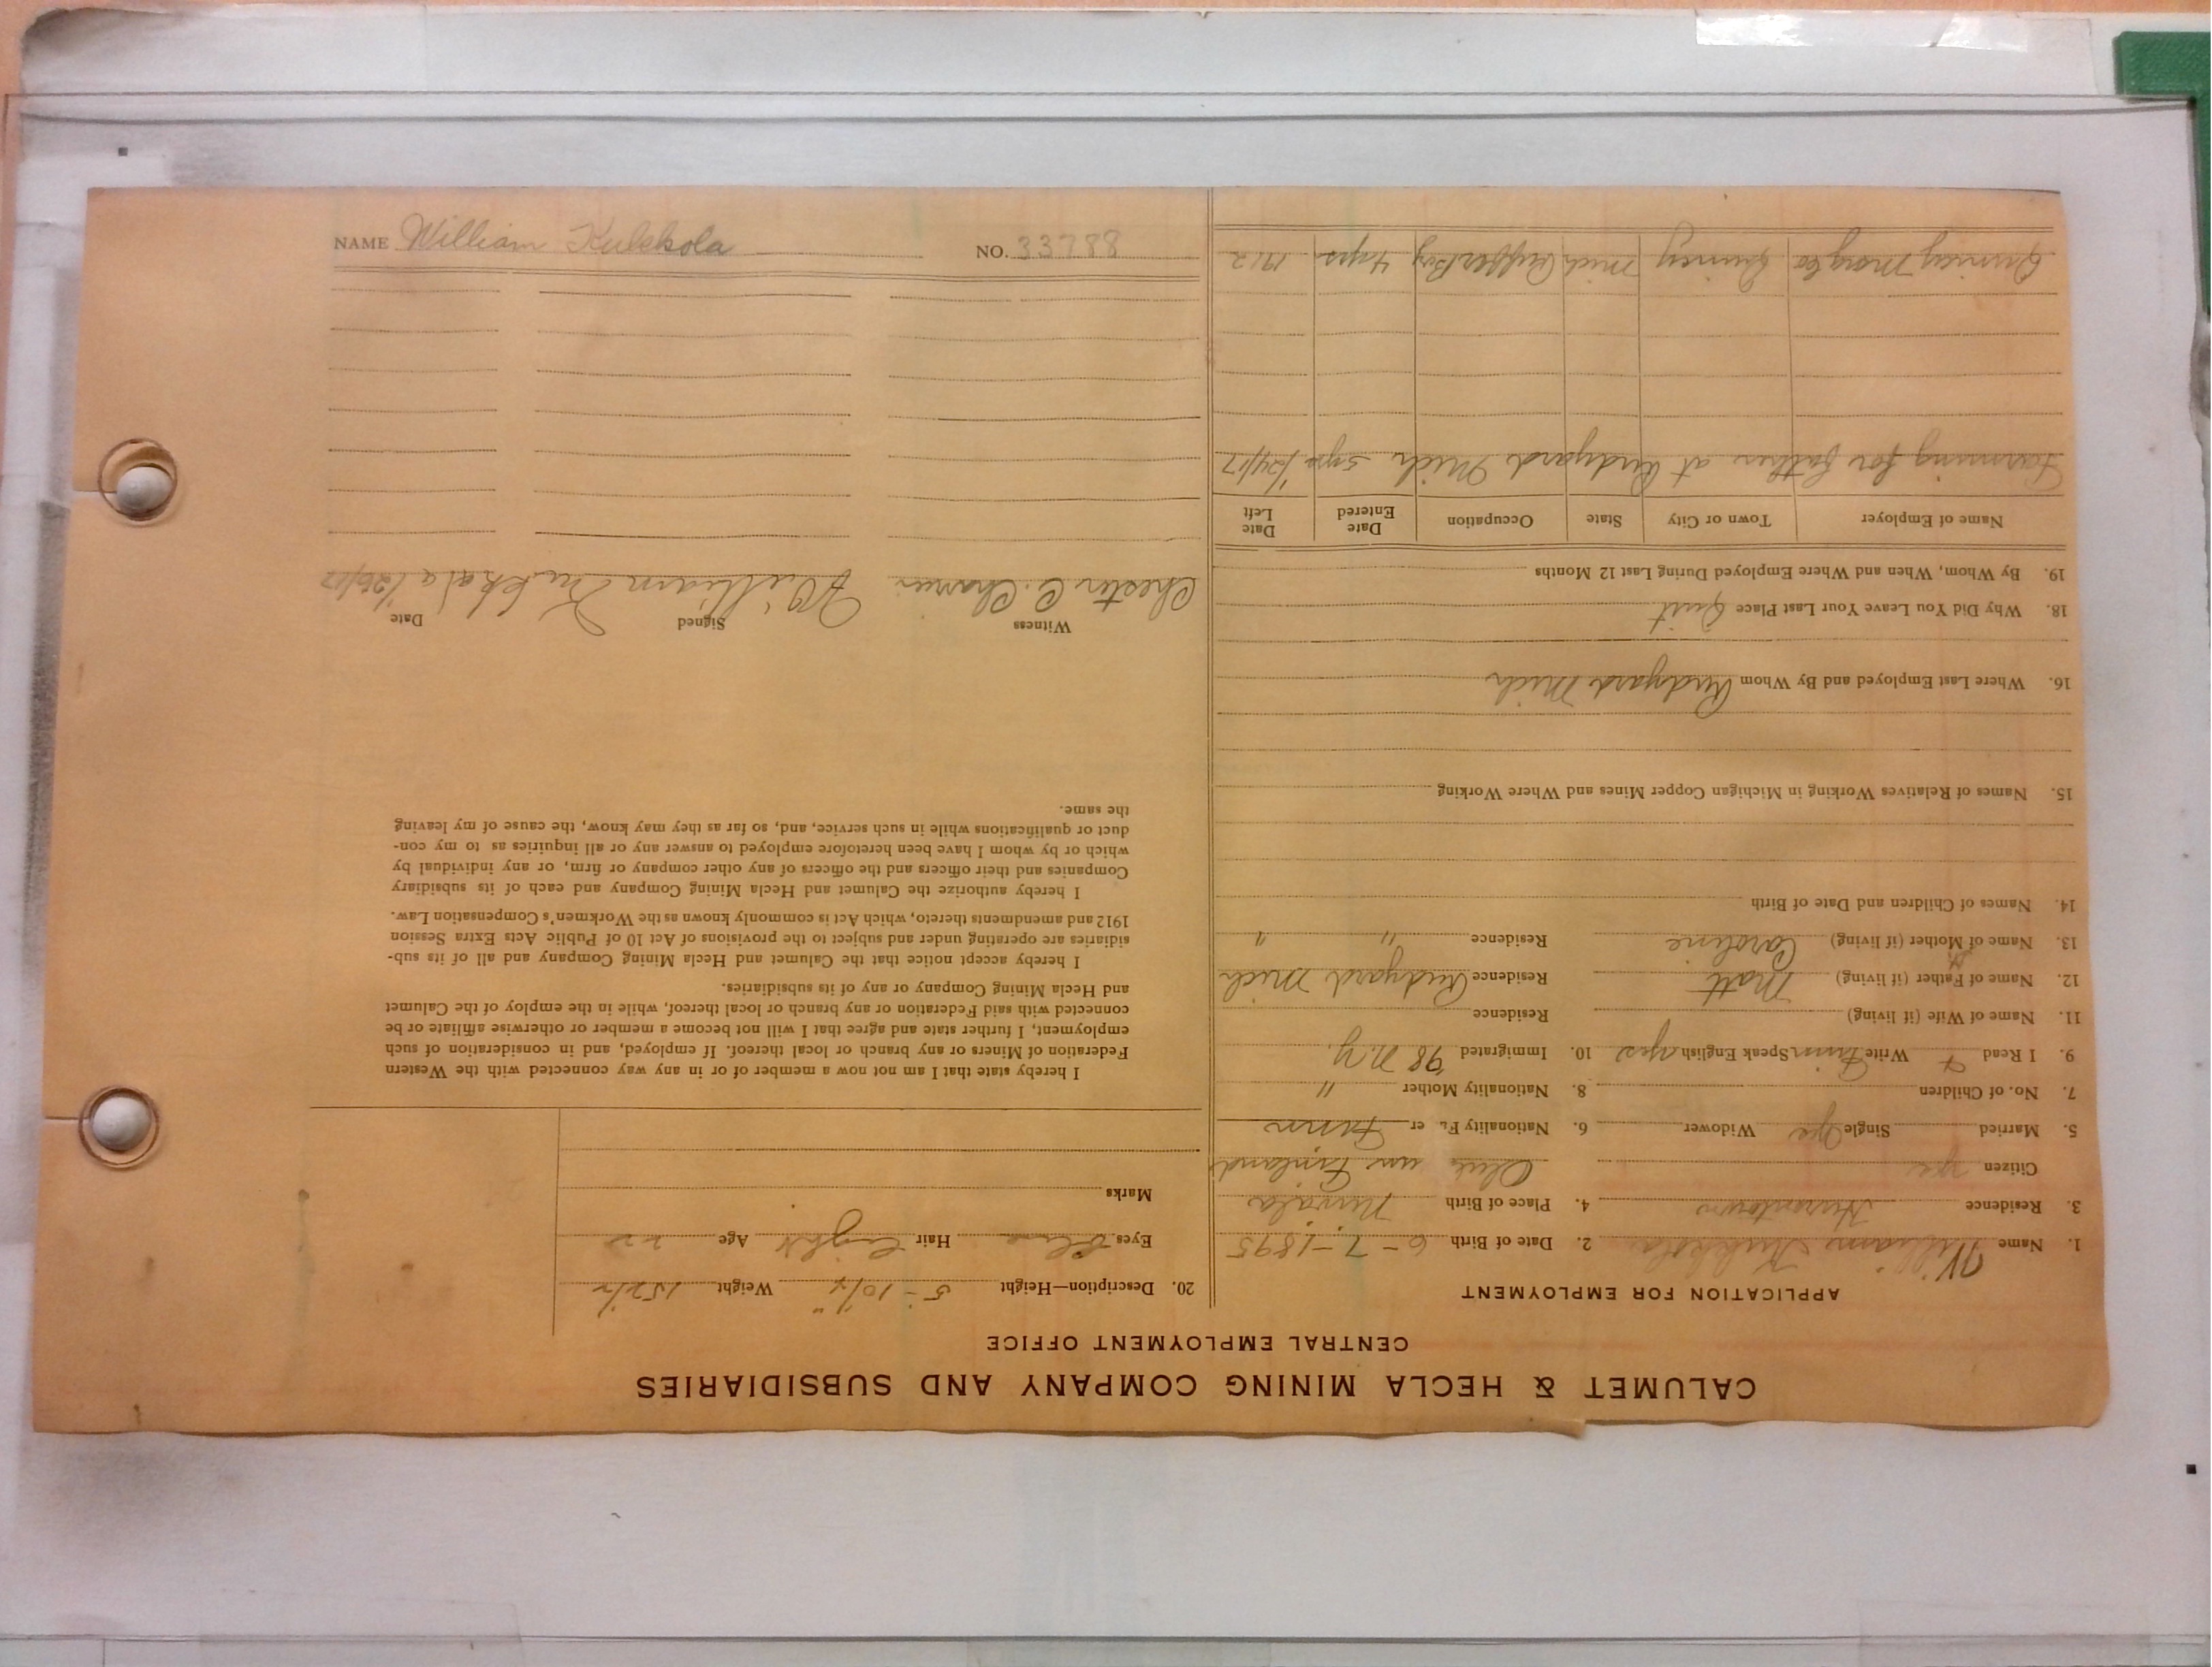 CALUMET & HECLA MINING COMPANY AND SUBSIDIARIES
CENTRAL EMPLOYMENT OFFICE
APPLICATION FOR EMPLOYMENT
1. Name William Kukkola 2. Date of Birth 6-7-1895
3. Residence Hurontown 4. Place of Birth Nivala
Citizen yes Finland
5. Married Single yes Widower 6. Nationality F er Finn
7. No. of Children 8. Nationality Mother "
9. I Read + Write Finn Speak English yes 10. Immigrated '98 N.Y.
11. Name of Wife (if living) Residence
12. Name of Father (if living) Matt Residence Rudyard Mich
13. Name of Mother (if living) Caroline Residence " "
14. Names of Children and Date of Birth
15. Names of Relatives Working in Michigan Copper Mines and Where Working
16. Where Last Employed and By Whom Rudyard Mich
18. Why Did You Leave Your Last Place Quit
19. By Whom, When and Where Employed During Last 12 Months
Name of Employer Town or City State Occupation Date Entered Date Left
Farming for father at Rudyard Mich 5 yrs 1/24/17
Quincy Mng Co Quincy Mich Boy 4 yrs 1912
20. Description—Height 5'-10 1/4" Weight 152 1/2
Eyes Blue Hair Light Age 22
Marks
I hereby state that I am not now a member of or in any way connected with the Western
Federation of Miners or any branch or local thereof. If employed, and in consideration of such
employment, I further state and agree that I will not become a member or otherwise affiliate or be
connected with said Federation or any branch or local thereof, while in the employ of the Calumet
and Hecla Mining Company or any of its subsidiaries.
I hereby accept notice that the Calumet and Hecla Mining Company and all of its sub-
sidiaries are operating under and subject to the provisions of Act 10 of Public Acts Extra Session
1912 and amendments thereto, which Act is commonly known as the Workmen's Compensation Law.
I hereby authorize the Calumet and Hecla Mining Company and each of its subsidiary
Companies and their officers and the officers of any other company or firm, or any individual by
which or by whom I have been heretofore employed to answer any or all inquiries as to my con-
duct or qualifications while in such service, and, so far as they may know, the cause of my leaving
the same.
Witness Signed Date
Chester C. William Kukkala 1/26/17
NAME William Kulckola NO. 33788